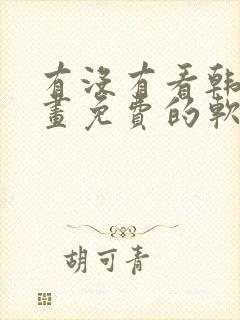 有沒有看韩
畫免費的軟
胡可青